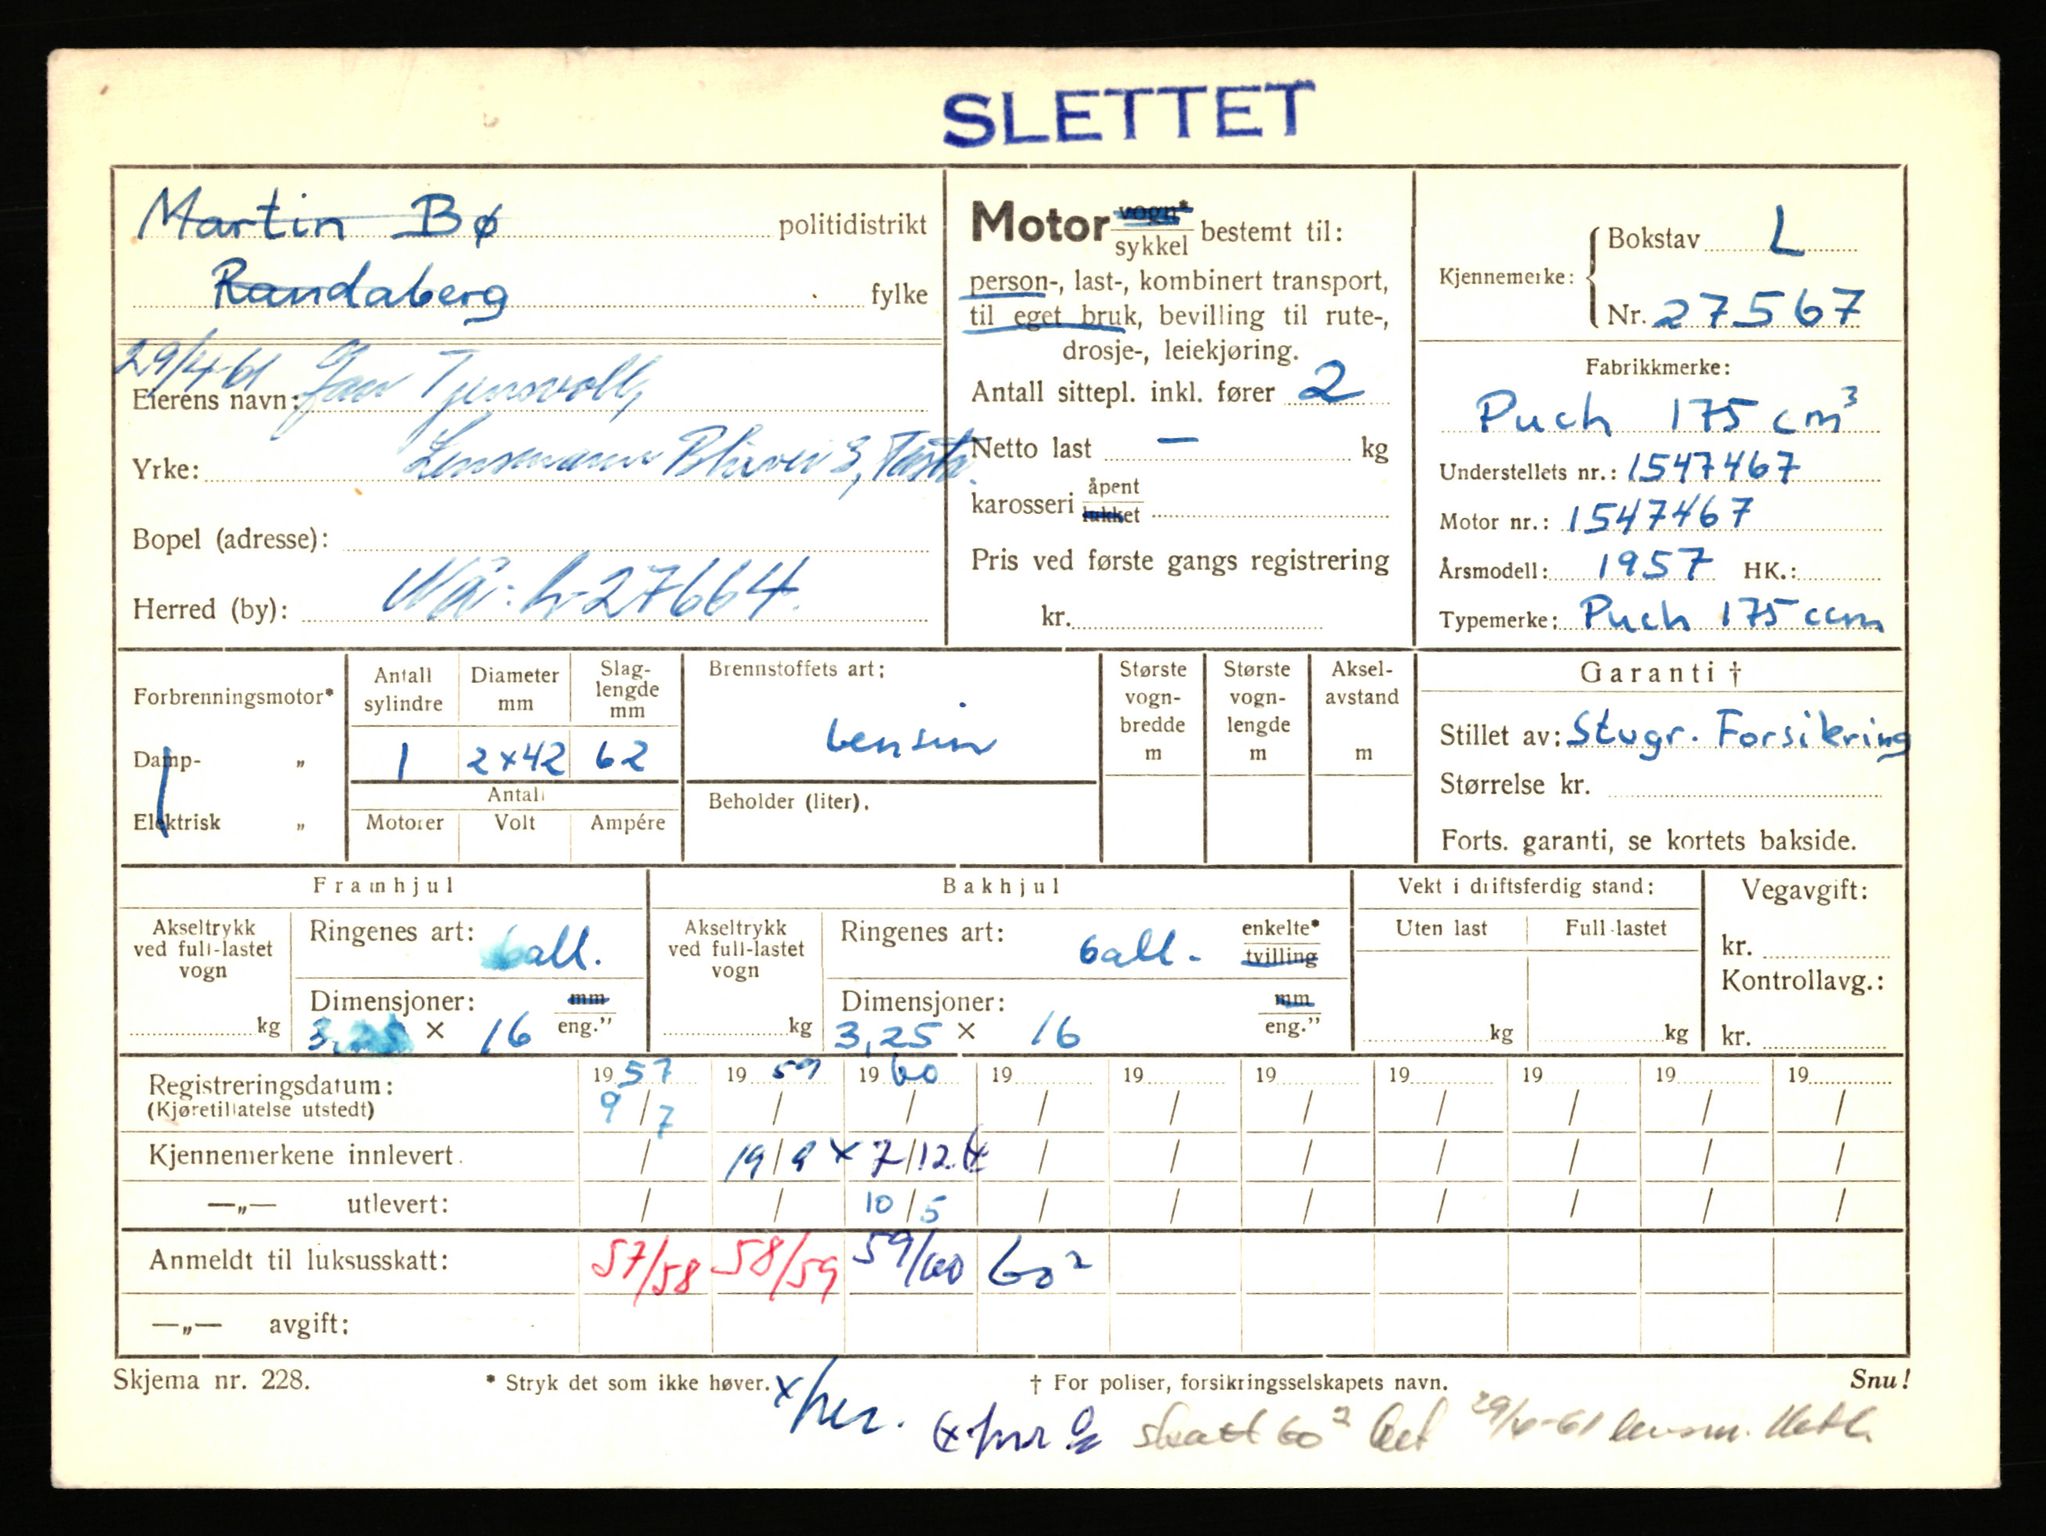 SLETTET
Martin Bø politidistrikt
Randaberg fylke
29/4-61 Jan Tjensvoll,
Eierens navn:
Yrke: Lensmann Blivei 3, Tasta.
Bopel (adresse):
Herred (by): Nå: L-27664.
Motor vogn* sykkel bestemt til:
person-, last-, kombinert transport,
til eget bruk, bevilling til rute-,
drosje-, leiekjøring.
Antall sittepl. inkl. fører 2
Netto last — kg
karosseri åpent lukket
Pris ved første gangs registrering
kr.
Kjennemerke: Bokstav L
Nr. 27567
Fabrikkmerke:
Puch 175 cm³
Understellets nr.: 1547467
Motor nr.: 1547467
Årsmodell: 1957 HK.:
Typemerke: Puch 175 ccm
Forbrenningsmotor*
Damp- „
Elektrisk „
Antall sylindre Diameter mm Slaglengde mm
1 2x42 62
Antall
Motorer Volt Ampére
Brennstoffets art:
bensin
Beholder (liter).
Største vogn-bredde m
Største vogn-lengde m
Aksel-avstand m
Garanti †
Stillet av: Stvgr. Forsikring
Størrelse kr.
Forts. garanti, se kortets bakside.
Framhjul
Akseltrykk ved full-lastet vogn kg
Ringenes art: ball.
Dimensjoner: mm
3,25 × 16 eng.”
Bakhjul
Akseltrykk ved full-lastet vogn kg
Ringenes art: ball. enkelte* tvilling
Dimensjoner: mm
3,25 × 16 eng.”
Vekt i driftsferdig stand:
Uten last Full-lastet
kg kg
Vegavgift:
kr.
Kontrollavg.:
kr.
Registreringsdatum: 1957 1959 1960 19 19 19 19 19 19 19
(Kjøretillatelse utstedt) 9/7 / / / / / / / / /
Kjennemerkene innlevert. / 19/9 x 7/12 (x / / / / / / /
—„— utlevert: / / 10/5 / / / / / / /
Anmeldt til luksusskatt: 57/58 58/59 59/60 60²
—„— avgift:
Skjema nr. 228. * Stryk det som ikke høver. † For poliser, forsikringsselskapets navn. Snu!
x her.
skatt 60² bet 29/4-61 lensm.